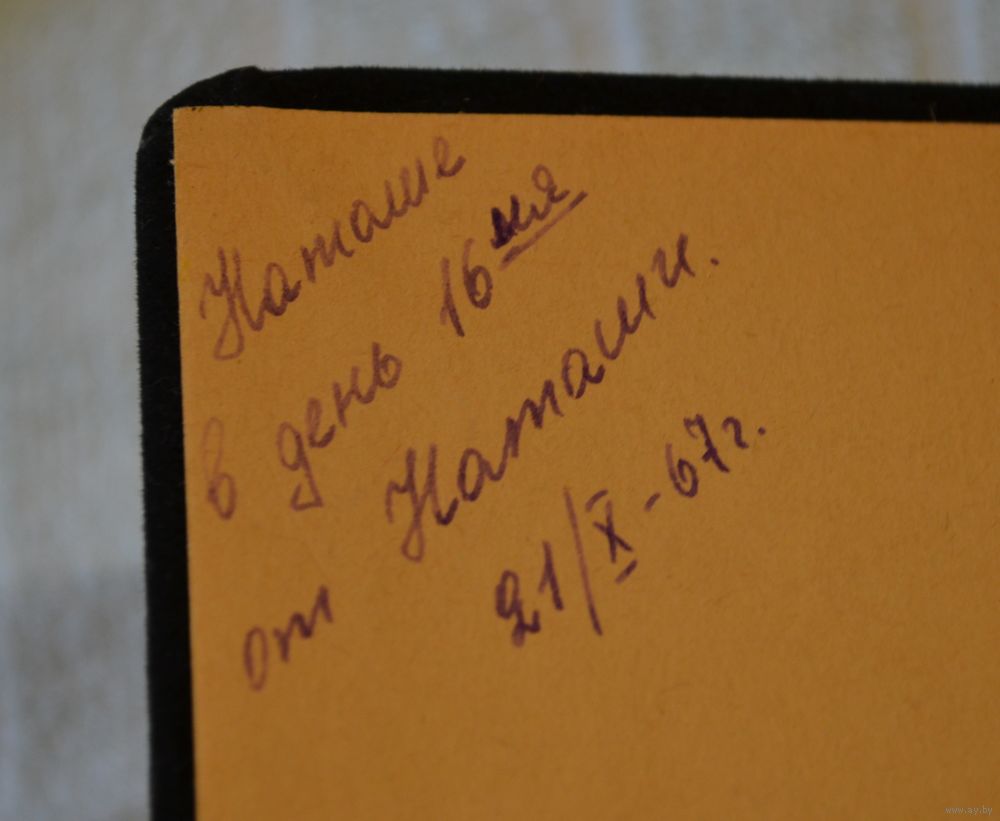 Наташе
в день 16мия
от Наташи.
21/X-67г.
www.ay.by